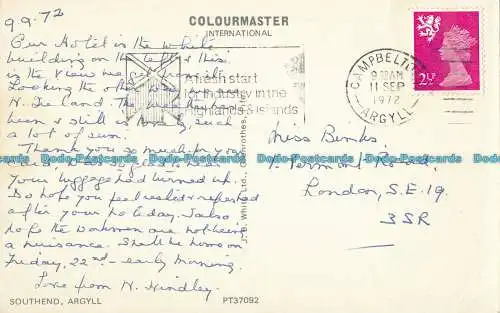 9.9.72
COLOURMASTER
INTERNATIONAL
Our Hotel is the white
building on the left & this
is the view we get from it.
Looking the other way
N. Ireland. The
been & still is lovely, such
a lot of sun.
Thank you so much for your
Your luggage had turned up.
Do hope you feel rested & refreshed
after your holiday. I also
hope the workmen are not being
a nuisance. Shall be home on
Friday, 22nd - early morning.
Love from N. Hindley.
SOUTHEND, ARGYLL
PT37092
A fresh start
for industry in the
highlands & islands
J. B. White Ltd.,
CAMPBELTOWN
9 30AM
11 SEP
1972
ARGYLL
2½P
Miss Binks
London, S.E.19.
3SR
Dodo-Postcards Dodo-Postcards Dodo-Postcards Dodo-Postcards Dodo-Postcards